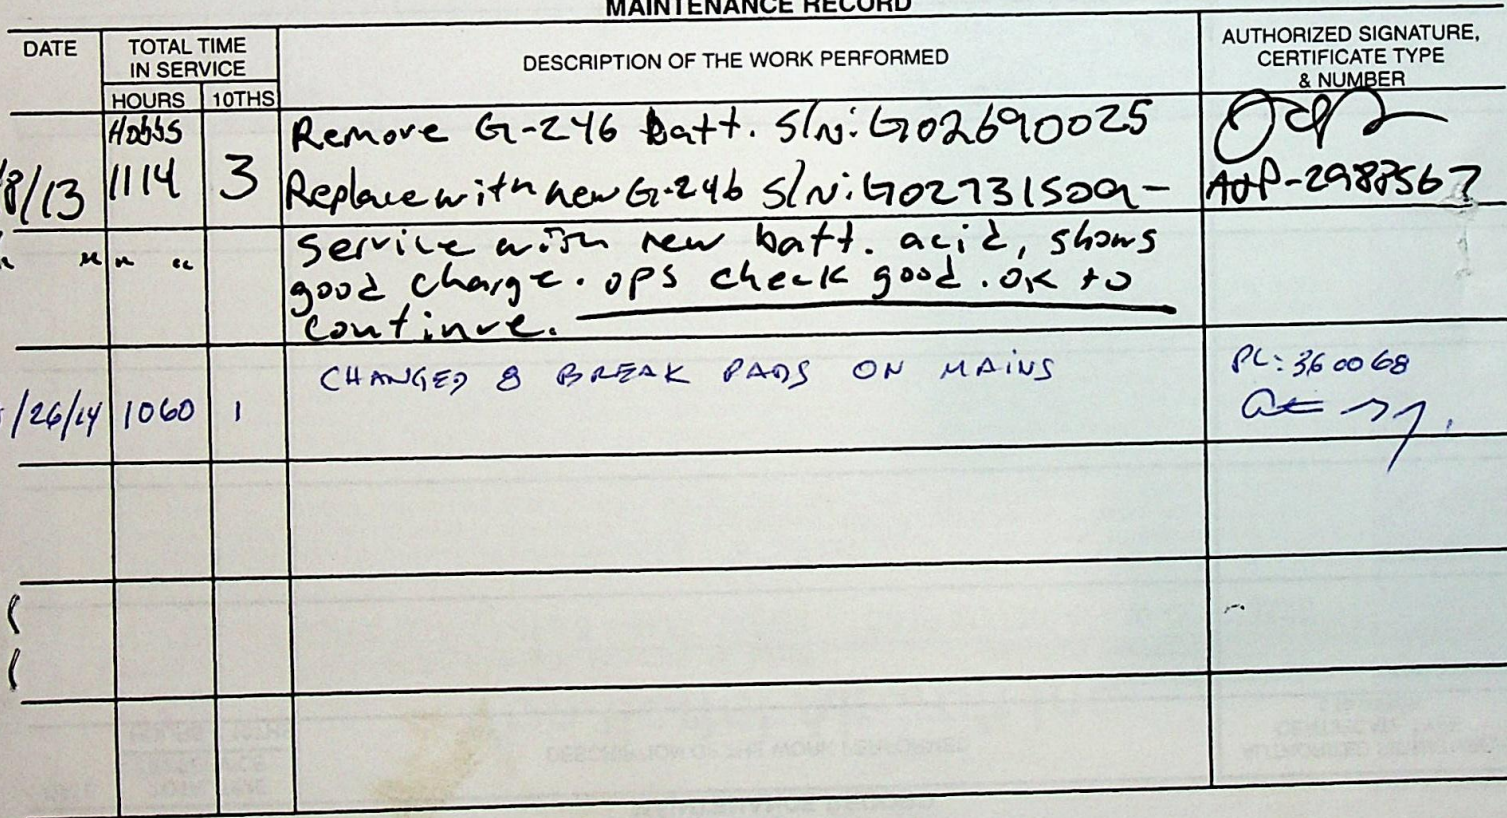 MAINTENANCE RECORD
DATE
TOTAL TIME
IN SERVICE
HOURS 10THS
DESCRIPTION OF THE WORK PERFORMED
AUTHORIZED SIGNATURE,
CERTIFICATE TYPE
& NUMBER
Hobbs
8/13 1114 3
Remove G-246 Batt. S/N: G02690025
Replace with new G-246 S/N: G02731509-
A&P-2988567
" " " "
Service with new batt. acid, shows
good charge. ops check good. ok to
continue.
/26/14 1060 1
CHANGED 8 BREAK PADS ON MAINS
PL: 360068